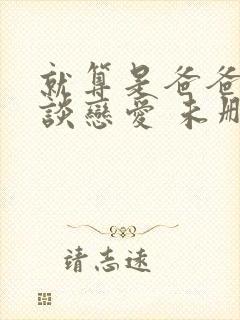 就算是爸爸
談戀愛 未刪
靖志遠